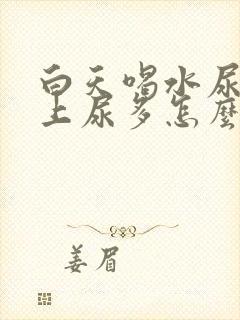 白天喝水尿
上尿多怎麼
姜眉